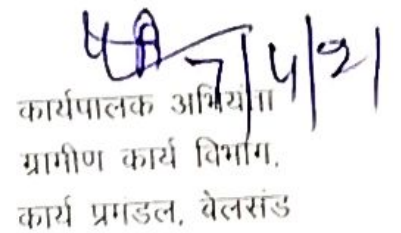 7/4/21
कार्यपालक अभियंता
ग्रामीण कार्य विभाग,
कार्य प्रमंडल, बेलसंड